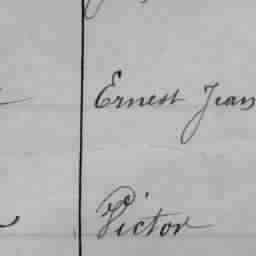 Ernest Jean
Victor